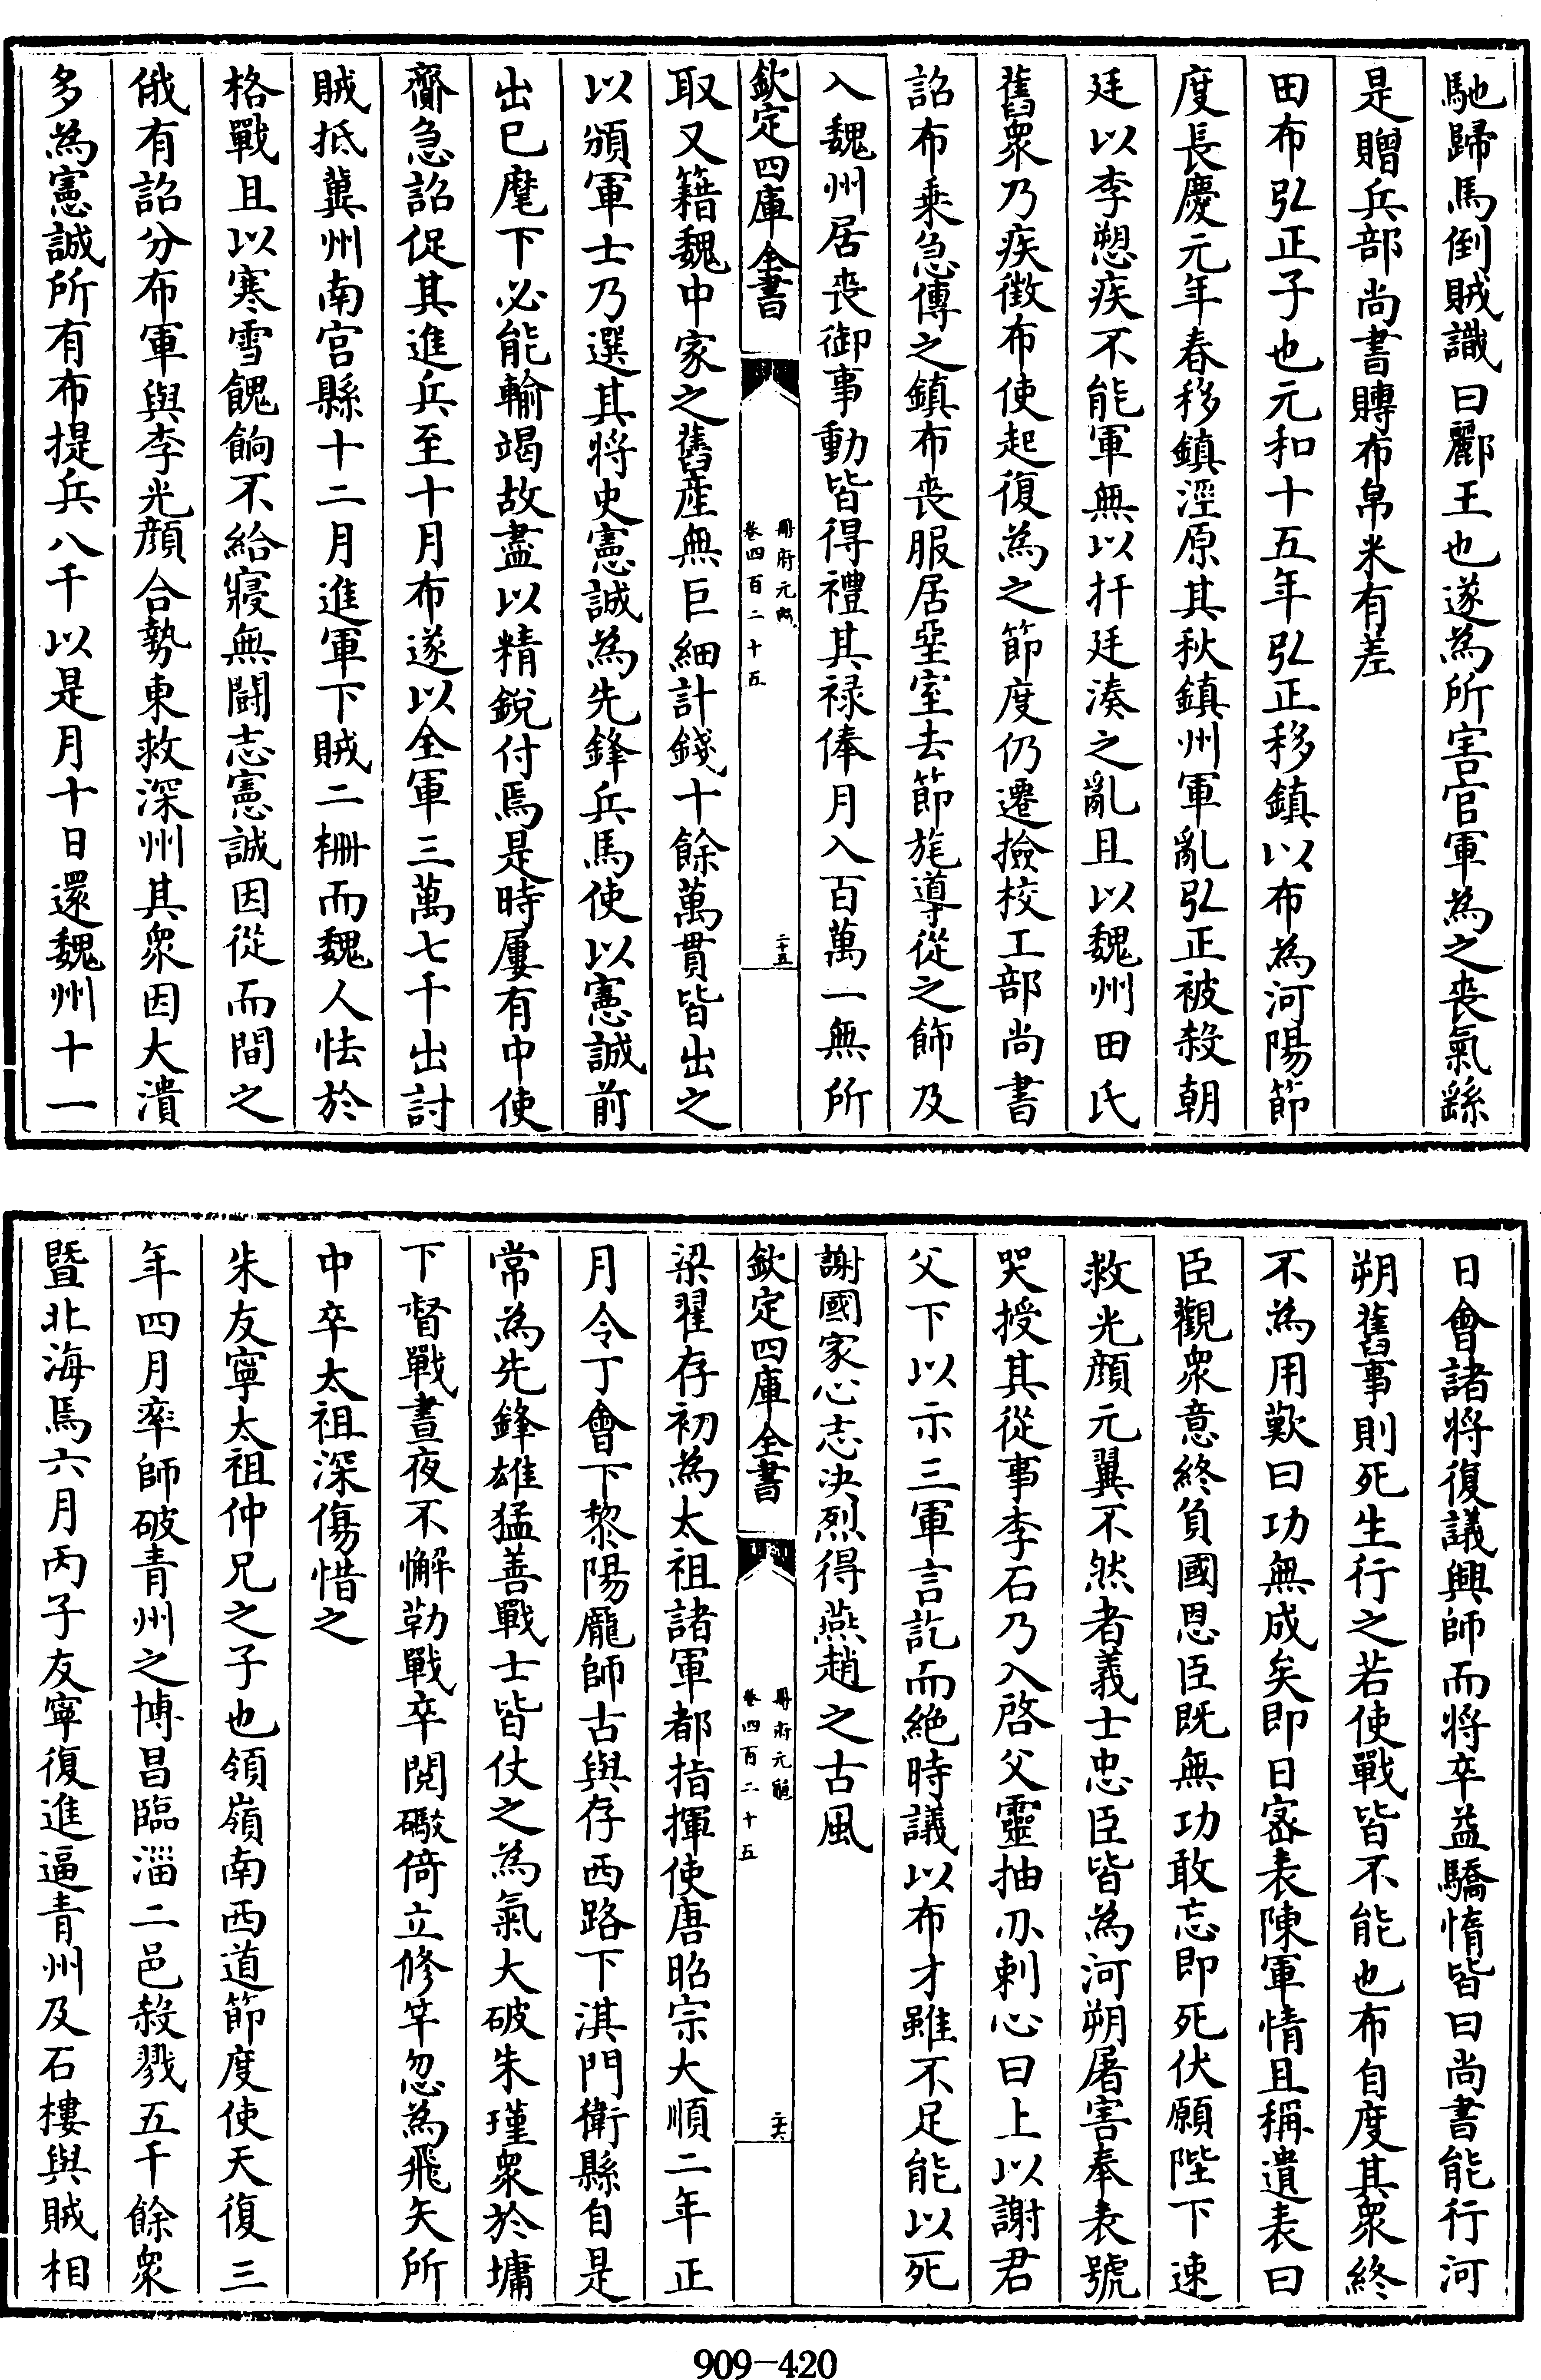 馳歸馬倒賊識曰酈王也遂為所害官軍為之喪氣繇
是贈兵部尚書賻布帛米有差
田布弘正子也元和十五年弘正移鎮以布為河陽節
度長慶元年春移鎮涇原其秋鎮州軍亂弘正被殺朝
廷以李愬疾不能軍無以扞廷湊之亂且以魏州田氏
舊衆乃疾徵布使起復為之節度仍遷撿校工部尚書
詔布乘急傳之鎮布喪服居堊室去節旄導從之飾及
入魏州居喪御事動皆得禮其禄俸月入百萬一無所
欽定四庫全書
冊府元龜
卷四百二十五
二十五
取又籍魏中家之舊產無巨細計錢十餘萬貫皆出之
以頒軍士乃選其将史憲誠為先鋒兵馬使以憲誠前
出已麾下必能輸竭故盡以精銳付焉是時屢有中使
齎急詔促其進兵至十月布遂以全軍三萬七千出討
賊抵冀州南宫縣十二月進軍下賊二柵而魏人怯於
格戰且以寒雪餽餉不給寢無鬪志憲誠因從而間之
俄有詔分布軍與李光顔合勢東救深州其衆因大潰
多為憲誠所有布提兵八千以是月十日還魏州十一
日會諸将復議興師而将卒益驕惰皆曰尚書能行河
朔舊事則死生行之若使戰皆不能也布自度其衆終
不為用歎曰功無成矣即日宻表陳軍情且稱遺表曰
臣觀衆意終負國恩臣既無功敢忘即死伏願陛下速
救光顔元翼不然者義士忠臣皆為河朔屠害奉表號
哭授其從事李石乃入啓父靈抽刃刺心曰上以謝君
父下以示三軍言訖而絶時議以布才雖不足能以死
謝國家心志決烈得燕趙之古風
欽定四庫全書
冊府元龜
卷四百二十五
二十六
梁翟存初為太祖諸軍都指揮使唐昭宗大順二年正
月令丁會下黎陽龐師古與存西路下淇門衛縣自是
常為先鋒雄猛善戰士皆仗之為氣大破朱瑾衆於墉
下督戰晝夜不懈勒戰卒閲礮倚立修竿忽為飛矢所
中卒太祖深傷惜之
朱友寧太祖仲兄之子也領嶺南西道節度使天復三
年四月率師破青州之博昌臨淄二邑殺戮五千餘衆
暨北海焉六月丙子友寧復進逼青州及石樓與賊相
909-420